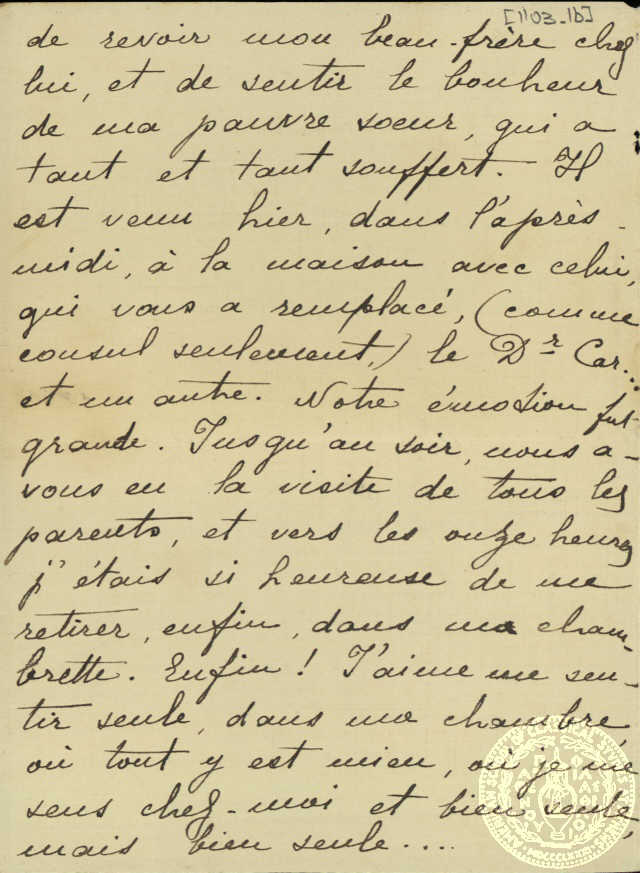 [1'03_1b]
de revoir mon beau-frère chez
lui, et de sentir le bonheur
de ma pauvre soeur, qui a
tant et tant souffert. Il
est venu hier, dans l'après-
midi, à la maison avec celui,
qui vous a remplacé, (comme
consul seulement,) le Dr Car...
et un autre. Notre émotion fut
grande. Jusqu'au soir, nous a-
vons eu la visite de tous les
parents, et vers les onze heures
j'étais si heureuse de me
retirer, enfin, dans ma cham-
brette. Enfin! J'aime me sen-
tir seule, dans ma chambre,
où tout y est mien, où je me
sens chez-moi et bien seule,
mais bien seule....
MDCCCLXXXII